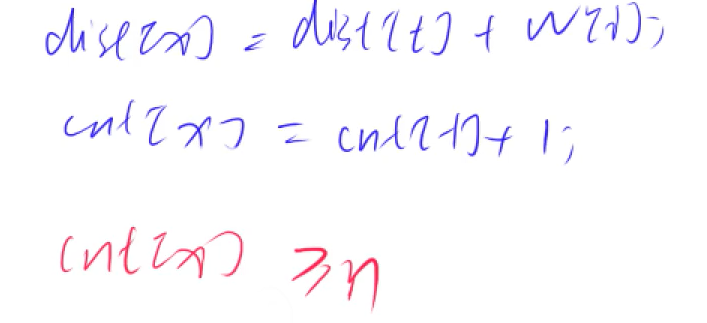 dist[x] = dist[t] + w[i];
cnt[x] = cnt[t] + 1;
cnt[x] ≥ n